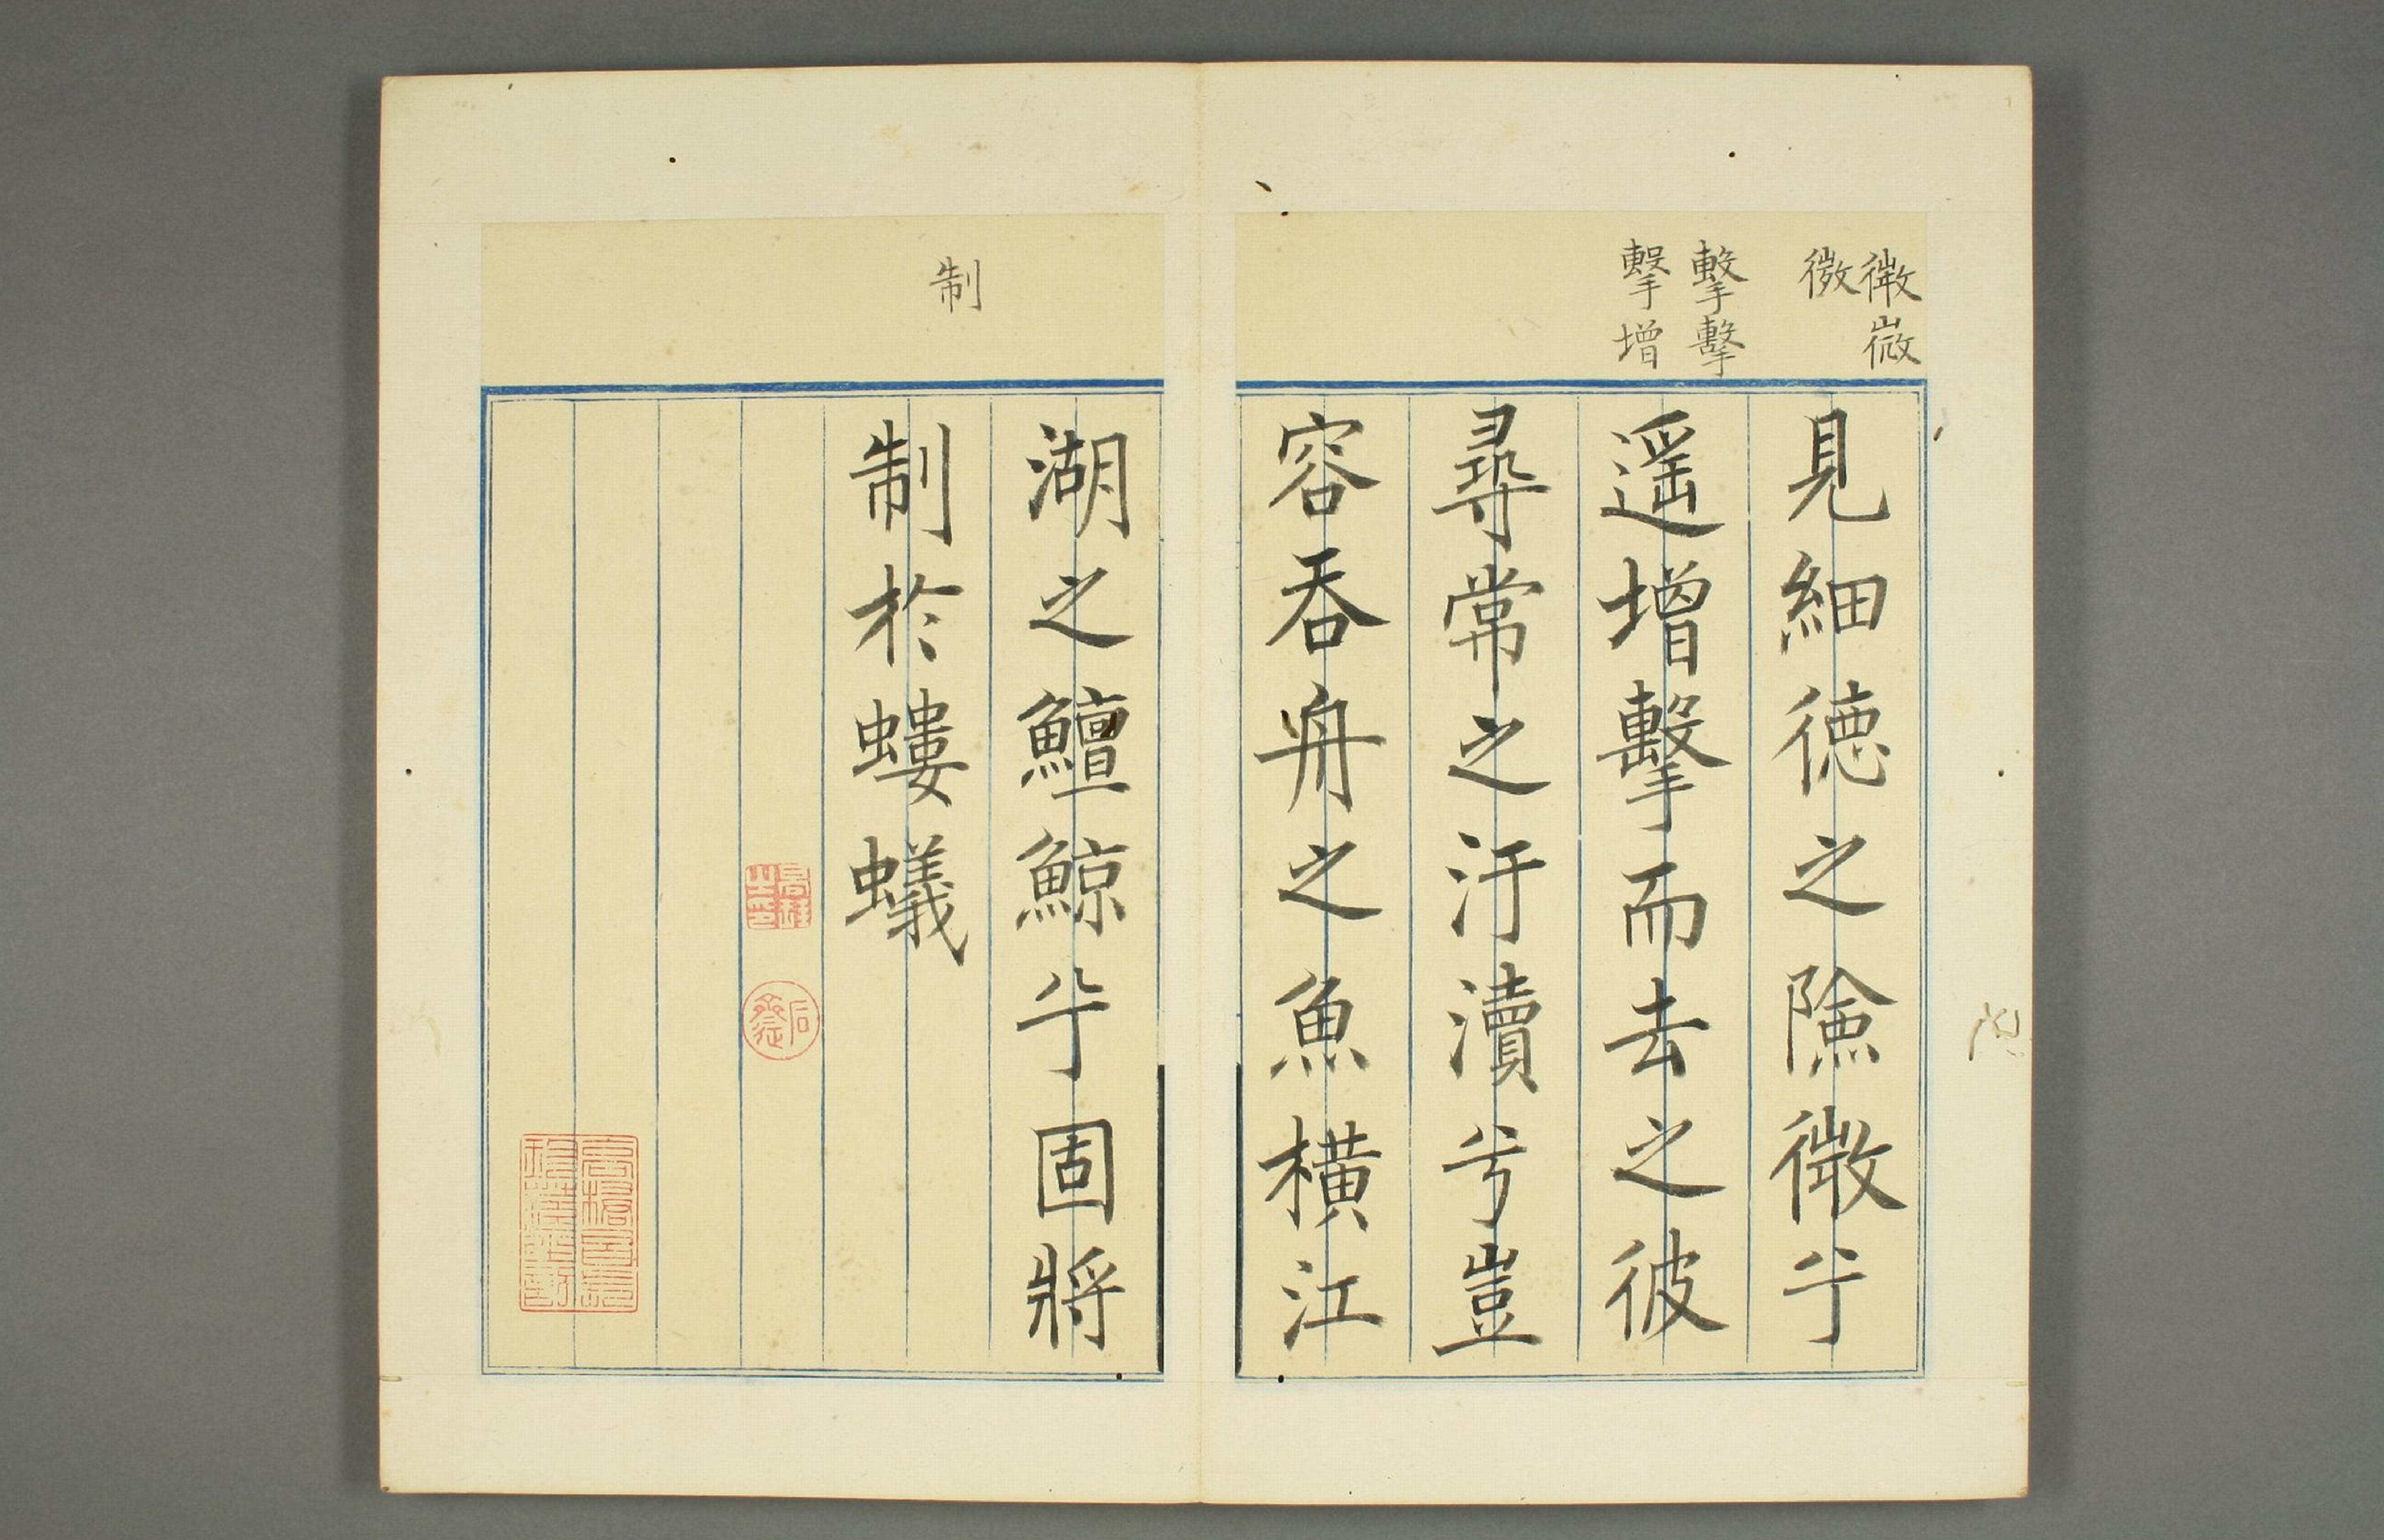 微微
微
擊擊
擊增
見細徳之險微乎
遥增擊而去之彼
尋常之汙瀆兮豈
容吞舟之魚橫江
制
湖之鱣鯨乎固將
制於螻蟻